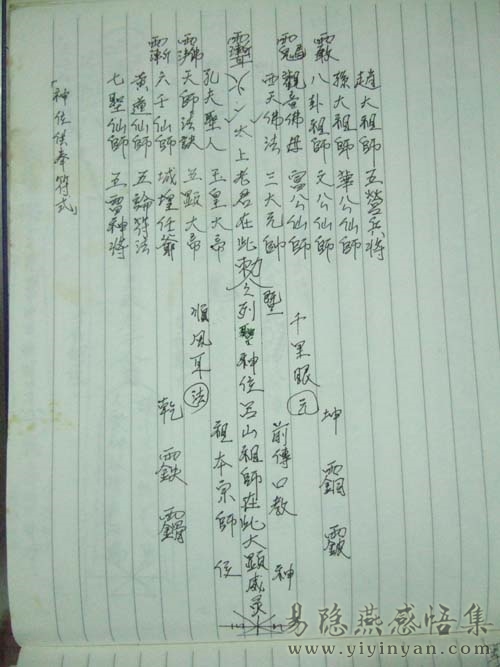 趙大祖師 五營兵將
孫大祖師 華公仙師
八卦祖師 文公仙師
觀音佛母 雪公仙師
西天佛法 三大元帥
太上老君在此勅令列聖神位呂山祖師在此大顯威灵
孔夫聖人 玉皇大帝
天師法訣 五顯大帝
六壬仙師 城隍任爺
黃道仙師 五論符法
七聖仙師 五雷神将
暨
千里眼 元
順風耳 法
前傳口教 神
祖本宗師 位
坤
乾
「神位供奉符式」
易隐燕感悟集
www.yiyinyan.com